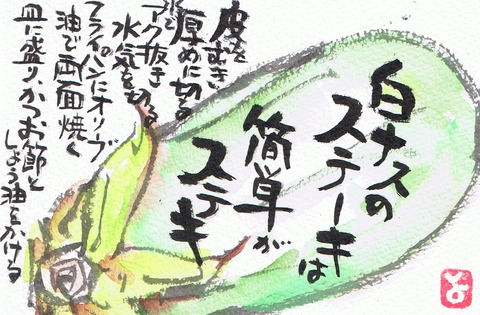 白ナスの
ステーキは
簡単が
ステキ
皮をむき
厚めに切る
水でアク抜き
水気を切る
フライパンにオリーブ
油で両面焼く
皿に盛りかつお節と
しょう油をかける